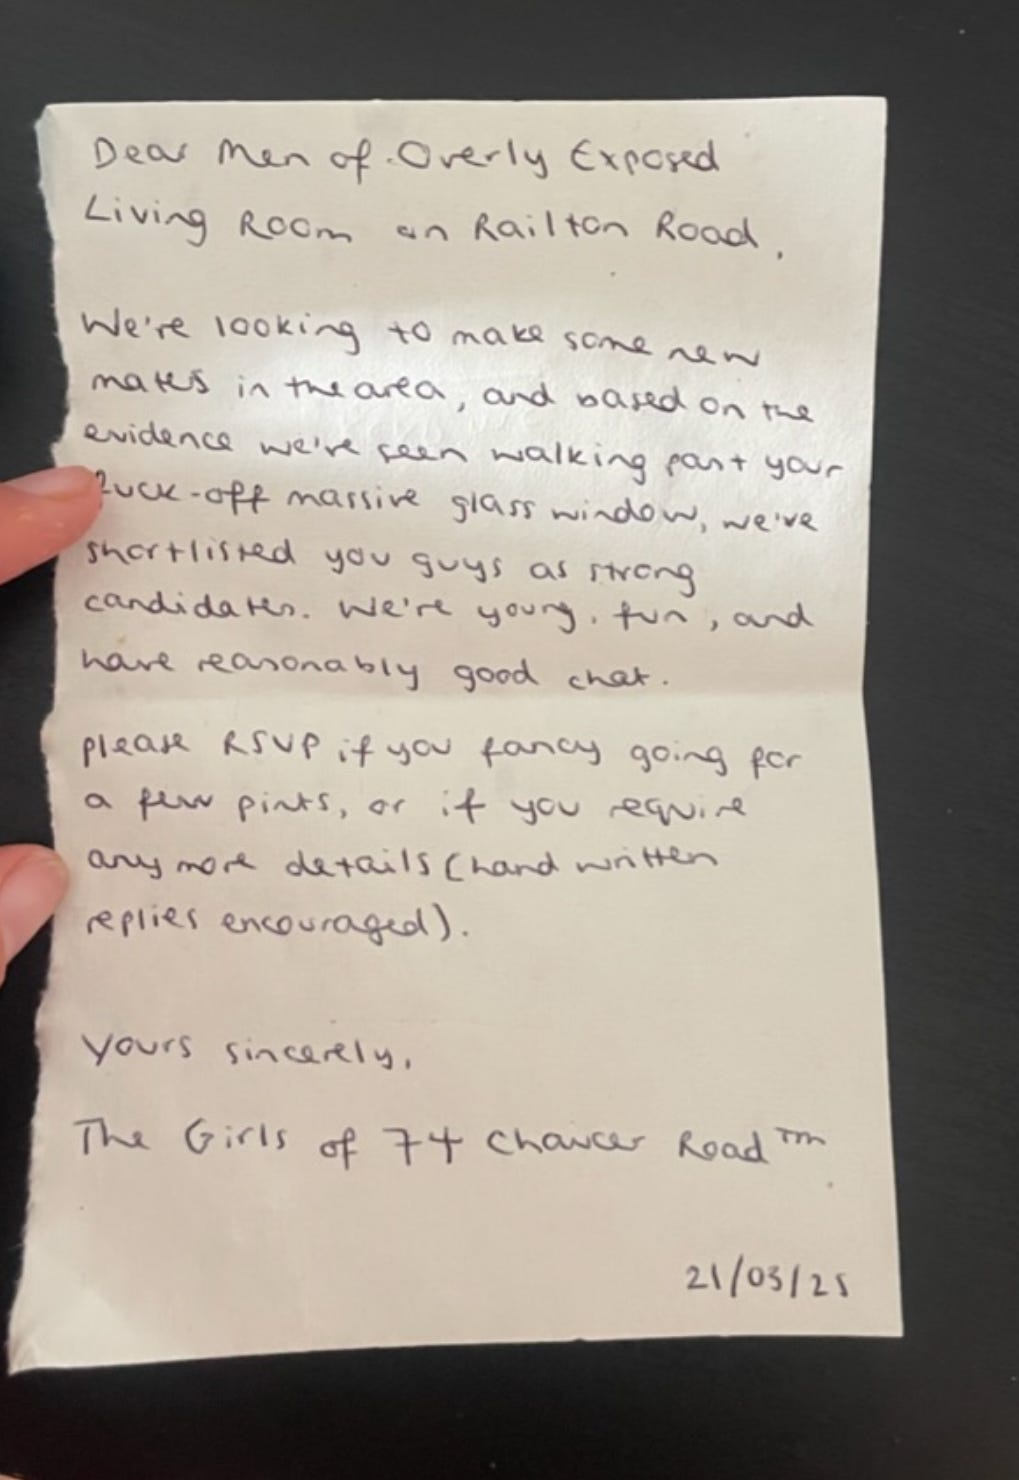 Dear Men of Overly Exposed
Living Room on Railton Road,
We're looking to make some new
mates in the area, and based on the
evidence we've seen walking past your
fuck-off massive glass window, we've
shortlisted you guys as strong
candidates. We're young, fun, and
have reasonably good chat.
please RSVP if you fancy going for
a few pints, or if you require
any more details (hand written
replies encouraged).
Yours sincerely,
The Girls of 74 Chaucer Road™
21/03/25